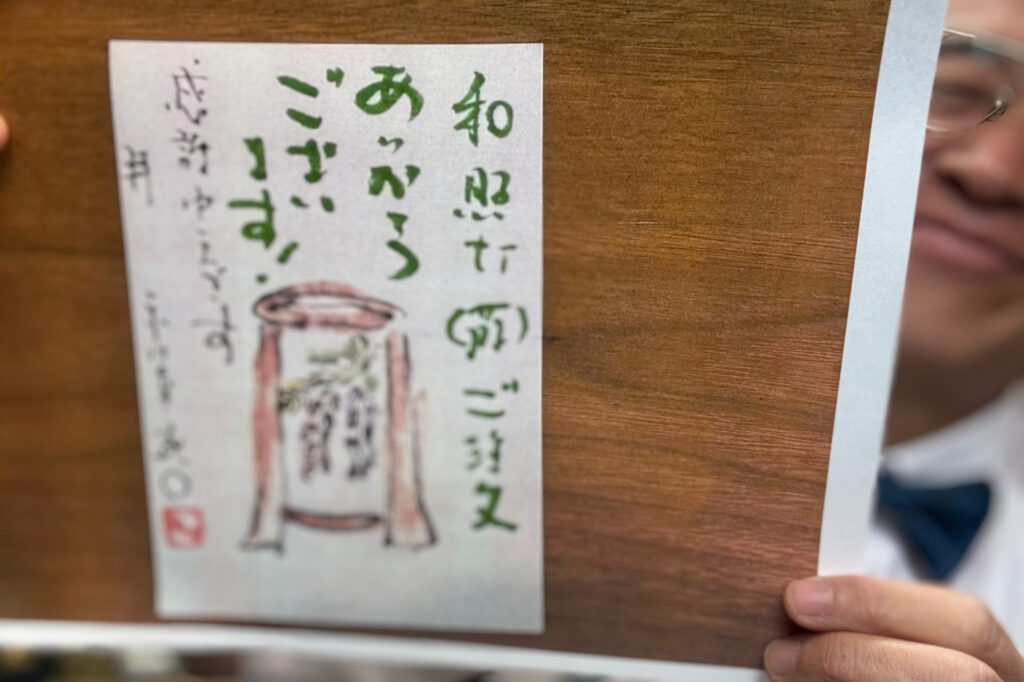 和照灯( )ご注文
ありがとう
ござい
ます!
感謝申し上げます